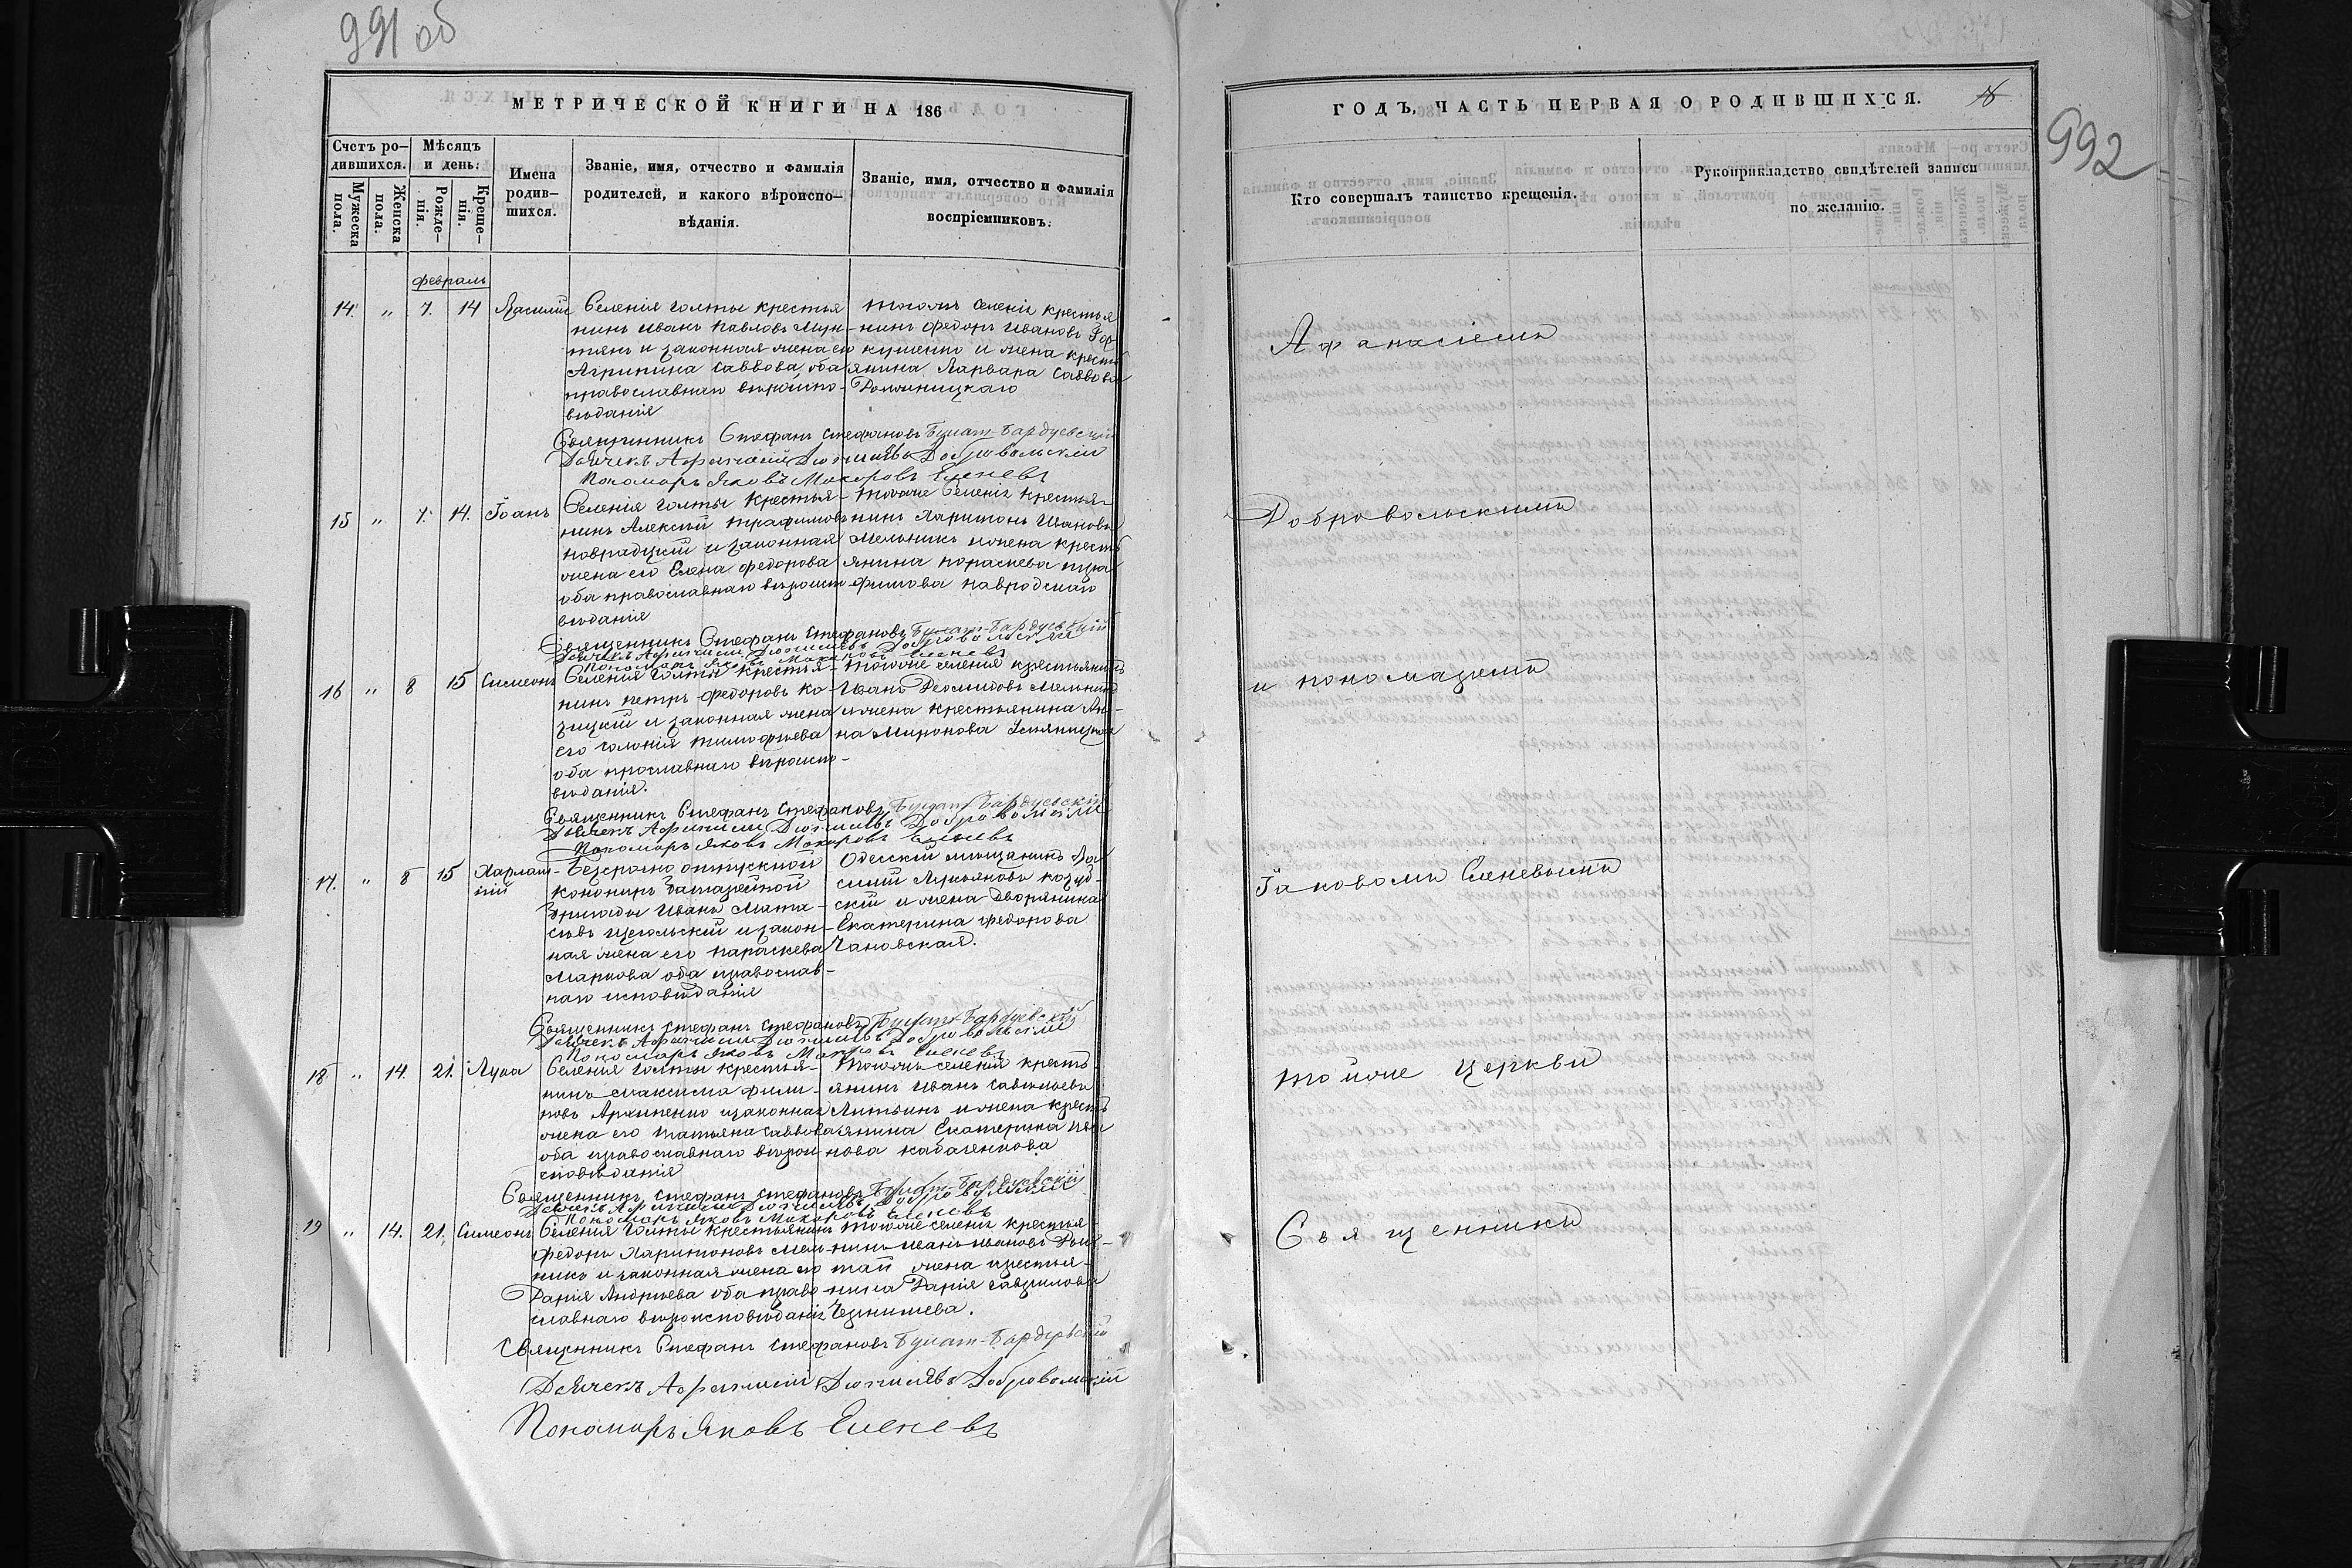 991 об
МЕТРИЧЕСКОЙ КНИГИ НА 186
Счетъ ро-
дившихся.
Мужеска
пола.
Женска
пола.
Мѣсяцъ
и день:
Рожде-
нія.
Креще-
нія.
Имена
родив-
шихся.
Званіе, имя, отчество и фамилія
родителей, и какого вѣроиспо-
вѣданія.
Званіе, имя, отчество и фамилія
воспріемниковъ.
февраль
14. " 7. 14 Василій
Селенія Голты крестья
нинъ Иванъ Павловъ
и законная жена его
Агрипина Саввова, оба
православнаго вѣроиспо-
вѣданія
тогожъ селенія крестья
нинъ Федоръ Ивановъ
и жена кресть
янина Варвара Саввова
Священникъ Стефанъ Стефановъ Булат-Бардуевскій
Дьячекъ Афанасій Добровольскій
Пономарь Яковъ Макаровъ Еленевъ
15 " 7. 14. Іоанъ
Селенія Голты крестья-
нинъ Алексѣй Трафимовъ
и законная
жена его Елена Федорова
оба православнаго вѣроиспо
вѣданія
тогоже селенія крестья-
нинъ Харитонъ Ивановъ
Мельникъ и жена кресть
янина Параскева
Священникъ Стефанъ Стефановъ Булат-Бардуевскій
Дьячекъ Афанасій Добровольскій
Пономарь Яковъ Макаровъ Еленевъ
16 " 8 15 Симеонъ
Селенія Голты крестья-
нинъ Петръ Федоровъ Ко-
зицкій и законная жена
его Тимофѣева
оба прославнаго вѣроиспо-
вѣданія.
тогоже селенія крестьянинъ
Иванъ Деомидовъ Мельникъ
и жена крестьянина Ан-
на Миронова
Священникъ Стефанъ Стефановъ Булат-Бардуевскій
Дьячекъ Афанасій Добровольскій
Пономарь Яковъ Макаровъ Еленевъ
17. " 8 15 Харлам-
пій
Безсрочно отпускной
конониръ батарейной
бригады Иванъ Мата-
и закон-
ная жена его Параскева
Маркова оба православ-
наго исповѣданія
Одесскій мѣщанинъ Ва
силій Лукьяновъ
скій и жена дворянина
Екатерина Федорова
Чановская.
Священникъ Стефанъ Стефановъ Булат-Бардуевскій
Дьячекъ Афанасій Добровольскій
Пономарь Яковъ Макаровъ Еленевъ
18 " 14. 21. Лука
Селенія Голты крестья-
нинъ Максимъ Фили-
повъ Архипенко и законная
жена его Татьяна Саввова
оба православнаго вѣрои
сповѣданія
тогожъ селенія кресть
янинъ Иванъ Савельевъ
Литвинъ и жена кресть
янина Екатерина Ива
нова
Священникъ Стефанъ Стефановъ Булат-Бардуевскій
Дьячекъ Афанасій Добровольскій
Пономарь Яковъ Макаровъ Еленевъ
19 " 14. 21. Симеонъ
Селенія Голты крестьянинъ
Федоръ Харитоновъ Мель-
никъ и законная жена его
Дарія Андрѣева оба право
славнаго вѣроисповѣданія
тогоже селенія крестья-
нинъ Иванъ Ивановъ
жена крестья-
нина Дарія Гаврилова
Чернишева.
Священникъ Стефанъ Стефановъ Булат-Бардуевскій
Дьячекъ Афанасій Добровольскій
Пономарь Яковъ Еленевъ
ГОДЪ, ЧАСТЬ ПЕРВАЯ О РОДИВШИХСЯ.
992
Кто совершалъ таинство крещенія.
Рукоприкладство свидѣтелей записи
по желанію.
Афанасіемъ
Добровольскимъ
и пономаремъ
Іаковомъ Еленевымъ
тойже церкви
Священникъ